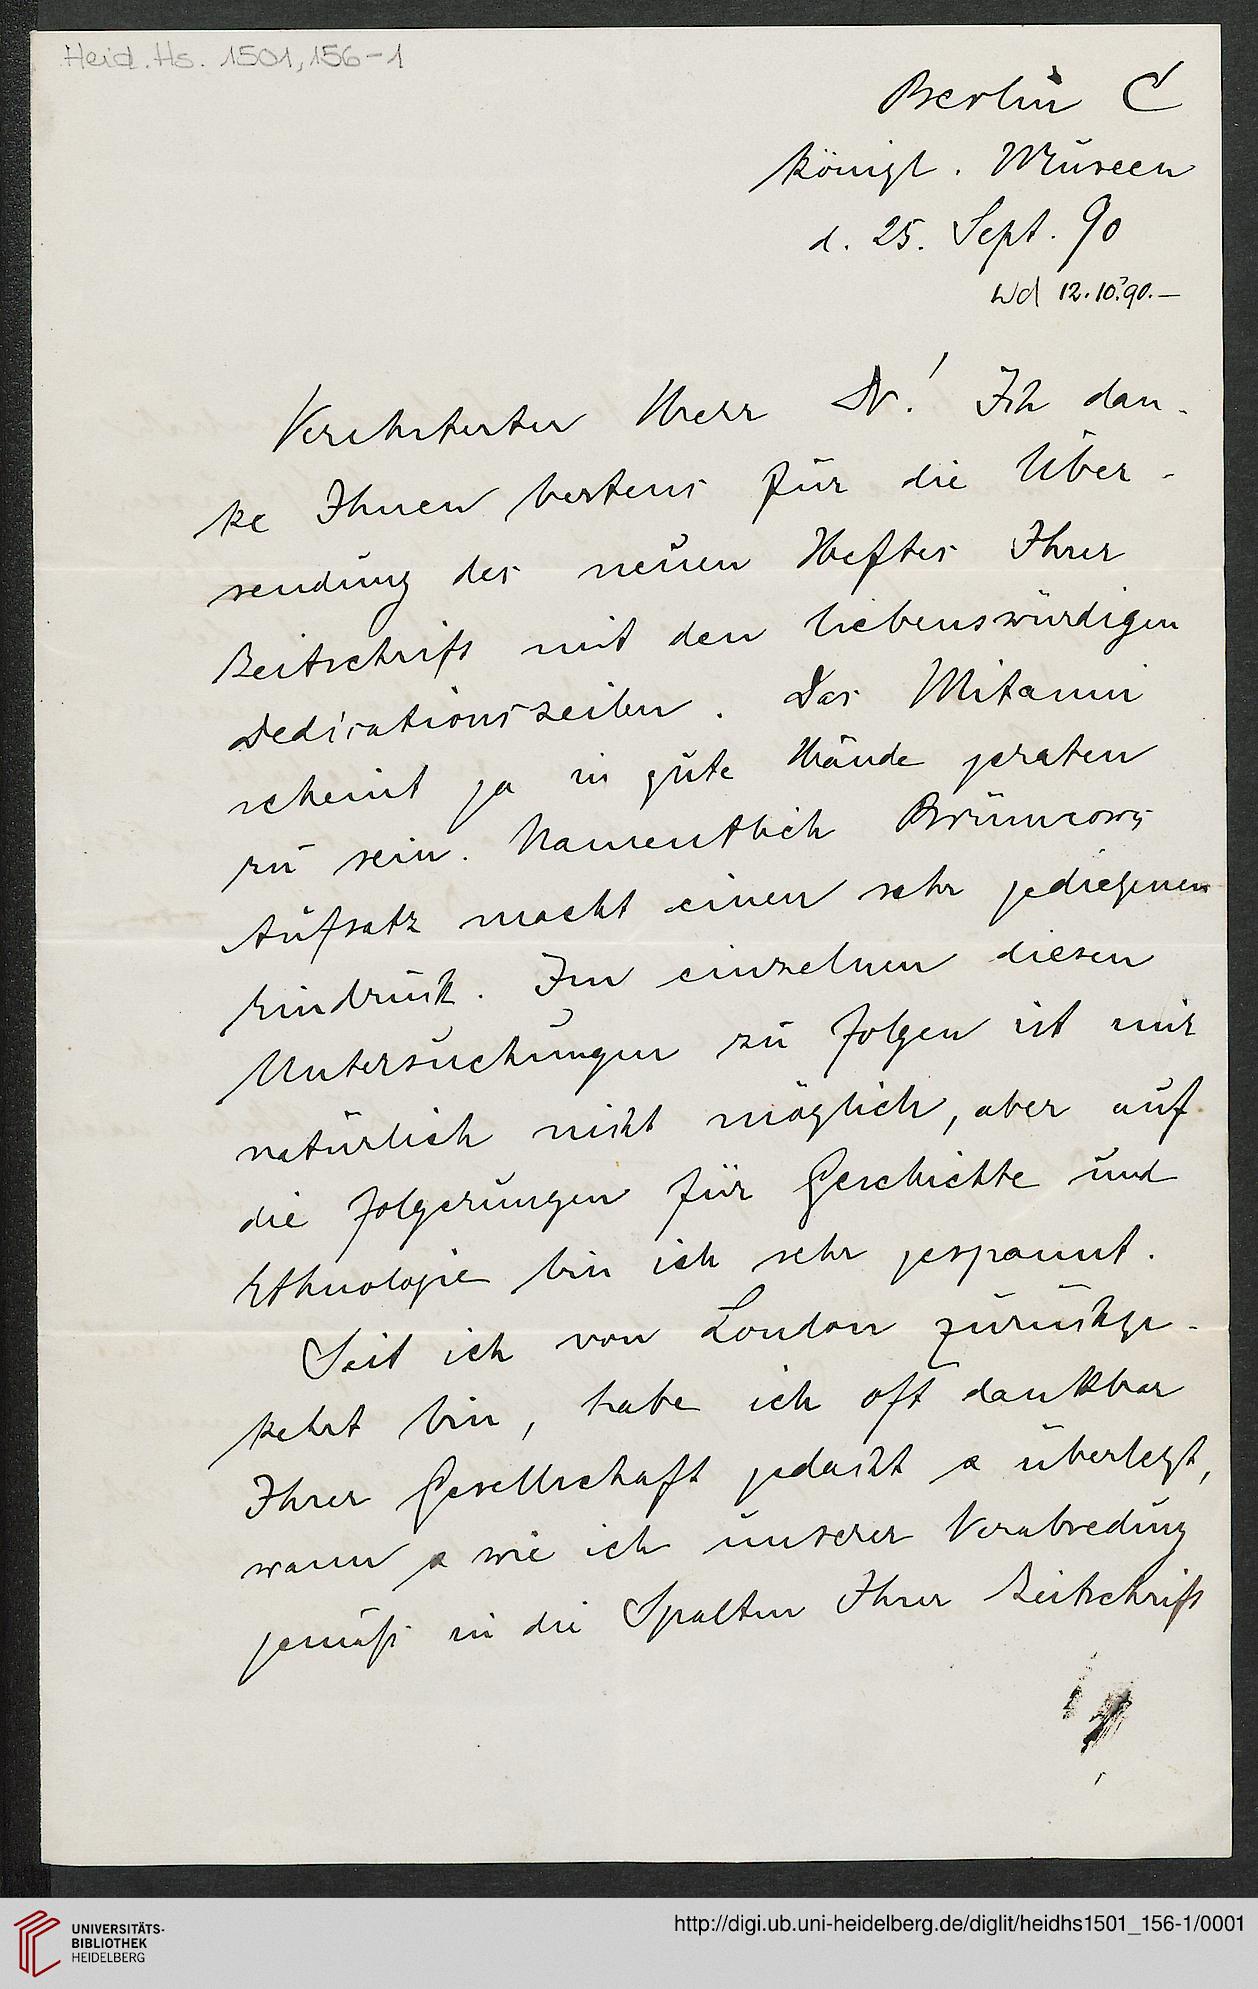 Heid. Hs. 1501,156-1
Berlin C
Königl. Museen
d. 25. Sept. 90
Wd 12.10.90.—
Verehrtester Herr Dr! Ich dan-
ke Ihnen bestens für die Über-
sendung des neuen Heftes Ihrer
Zeitschrift mit den liebenswürdigen
Dedicationszeilen. Das Mitanni
scheint ja in gute Hände geraten
zu sein. Namentlich Brünnows
Aufsatz macht einen sehr gediegenen
Eindruck. Im einzelnen diesen
Untersuchungen zu folgen ist mir
natürlich nicht möglich, aber auf
die Folgerungen für Geschichte und
Ethnologie bin ich sehr gespannt.
Seit ich von London zurückge-
kehrt bin, habe ich oft dankbar
Ihrer Gesellschaft gedacht & überlegt,
wann & wie ich unserer Verabredung
gemäß in die Spalten Ihrer Zeitschrift
UNIVERSITÄTS-
BIBLIOTHEK
HEIDELBERG
http://digi.ub.uni-heidelberg.de/diglit/heidhs1501_156-1/0001